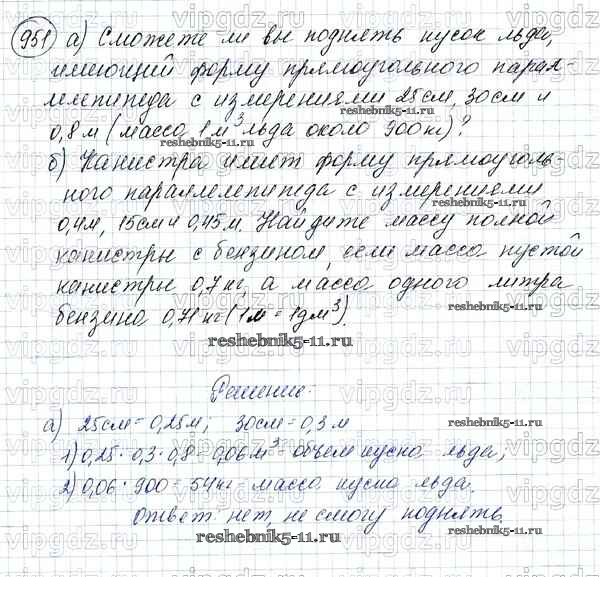 951 а) Сможете ли вы поднять кусок льда,
имеющий форму прямоугольного парал-
лелепипеда с измерениями 25см, 30см и
0,8 м (масса 1м³ льда около 900кг)?
б) Канистра имеет форму прямоуголь-
ного параллелепипеда с измерениями
0,4м, 15см и 0,45м. Найдите массу полной
канистры с бензином, если масса пустой
канистры 0,7кг, а масса одного литра
бензина 0,71 кг (1л = 1дм³).
reshebnik5-11.ru
Решение:
а) 25см = 0,25м; 30см = 0,3 м
1) 0,25 · 0,3 · 0,8 = 0,06м³ = объем куска льда;
2) 0,06 · 900 = 54кг = масса куска льда.
Ответ: нет, не смогу поднять.
reshebnik5-11.ru
vipgdz.ru